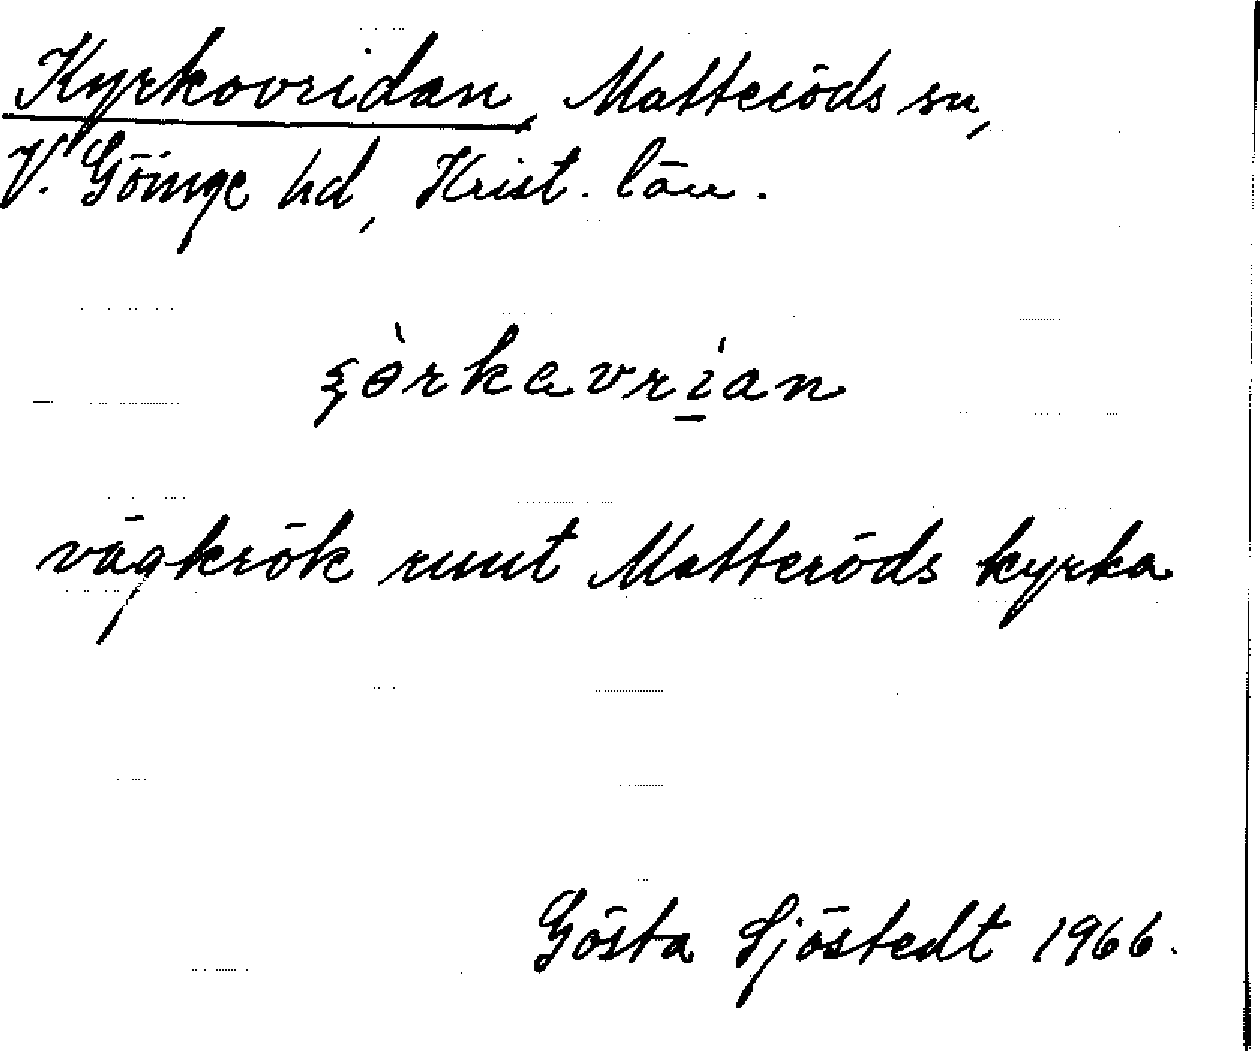 Kyrkovridan, Matteröds sn,
V. Göinge hd, Krist. län.
ʂɵ̀rkavrí̱an
vägkrök runt Matteröds kyrka
Gösta Sjöstedt 1966.